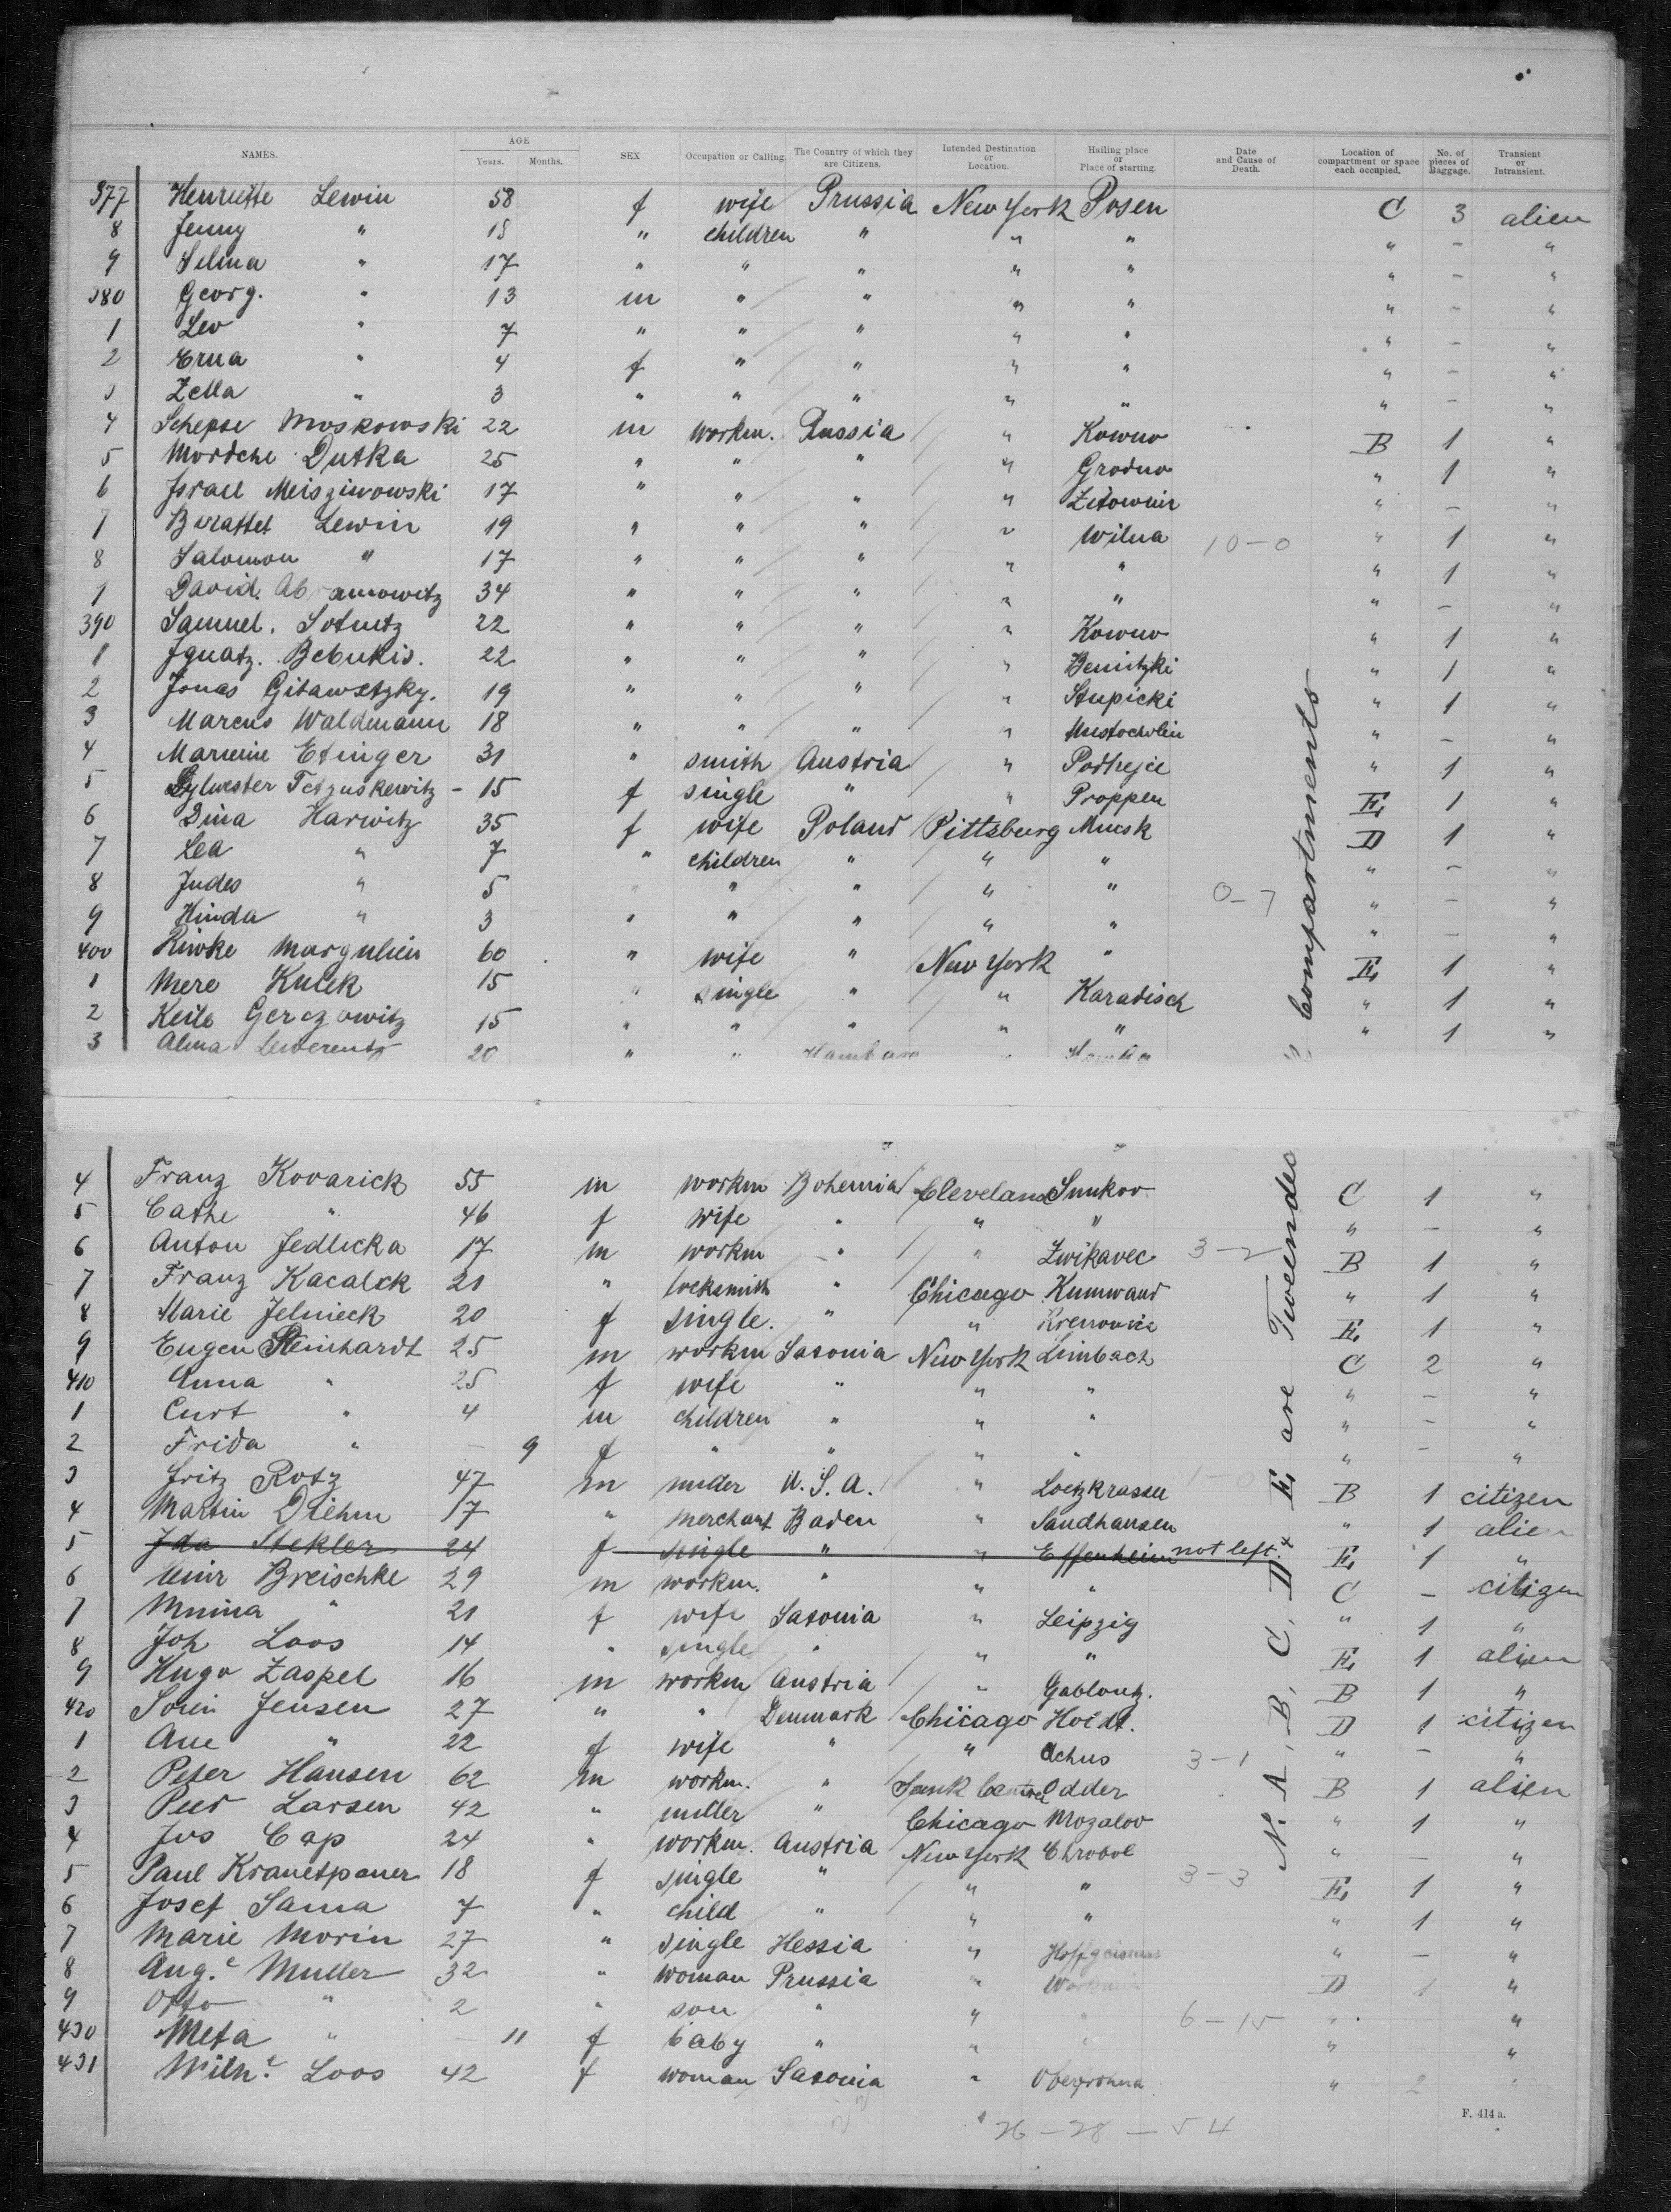 NAMES. AGE Years. Months. SEX Occupation or Calling. The Country of which they are Citizens. Intended Destination or Location. Hailing place or Place of starting. Date and Cause of Death. Location of compartment or space each occupied. No. of pieces of Baggage. Transient or Intransient.
377 Henriette Lewin 58 f wife Prussia New York Posen C 3 alien
8 Jenny " 18 " children " " " " - "
9 Selma " 17 " " " " " " - "
380 Georg. " 13 m " " " " " - "
1 Leo " 7 " " " " " " - "
2 Erna " 4 f " " " " " - "
3 Zella " 3 " " " " " " - "
4 Schepse Moskowski 22 m workm. Russia " Kowno B 1 "
5 Mordche Dutka 25 " " " " Grodno " 1 "
6 Israel Meiszinowski 17 " " " " Zitownir " - "
7 Lewin 19 " " " " Wilna 10-0 " 1 "
8 Salomon " 17 " " " " " " 1 "
9 David Abramowitz 34 " " " " " " - "
390 Samuel. Sotnitz 22 " " " " Kowno " 1 "
1 Ignatz. Bebukis. 22 " " " " Benitzki " 1 "
2 Jonas Gitawetzky. 19 " " " " Stupicki " 1 "
3 Marcus Waldmann 18 " " " " " - "
4 Etinger 31 " smith Austria " Podhejie " 1 "
5 Sylwester Tetzuskewitz - 15 f single " " Proppen E 1 "
6 Dina Harwitz 35 f wife Poland Pittsburg Minsk D 1 "
7 Lea " 7 " children " " " " - "
8 Judes " 5 " " " " " 0-7 " - "
9 Hinda " 3 " " " " " " - "
400 Riwke Margulies 60 " wife " New York " E 1 "
1 Mere Kulek 15 " single " " Karadisch " 1 "
2 Keile Gerczowitz 15 " " " " " " 1 "
3 Alma Lewerentz 20 " "
4 Franz Kovarick 55 m workm Bohemia Cleveland Smikov C 1 "
5 Cathe " 46 f wife " " " " - "
6 Anton Jedlicka 17 m workm " " Zwikavec 3-2 B 1 "
7 Franz Kacalek 21 " locksmith " Chicago Kumwaud " 1 "
8 Marie Jelnieck 20 f single. " " Krenovice E 1 "
9 Eugen Steinhardt 25 m workm Saxonia New York Limbach C 2 "
410 Anna " 25 f wife " " " " - "
1 Curt " 4 m children " " " " - "
2 Frida " - 9 f " " " " " - "
3 Fritz Rotz 47 m miller U. S. A. " Loetzkrassee 1-0 B 1 citizen
4 Martin Diehm 17 " merchant Baden " Sandhausen " 1 alien
5 Ida Stekler 24 f single " " Effenheim not left. E 1 "
6 Heinr Breischke 29 m workm. " " " C - citizen
7 Minna " 21 f wife Saxonia " Leipzig " 1 "
8 Joh Loos 14 " single " " " E 1 alien
9 Hugo Zaspel 16 m workm Austria " Gablontz. B 1 "
420 Soren Jensen 27 " " Denmark Chicago Hoidt. D 1 citizen
1 Ane " 22 f wife " " Achus 3-1 " - "
2 Peter Hansen 62 m workm. " Odder B 1 alien
3 Peer Larsen 42 " miller " Chicago Mozalov " 1 "
4 Jos Cap 24 " workm. Austria New York Chrobol " - "
5 Paul Kranetpauer 18 f single " " " 3-3 E 1 "
6 Josef Sama 7 " child " " " " 1 "
7 Marie Morin 27 " single Hessia " Hoffgeismar " - "
8 Aug.e Muller 32 " woman Prussia " D 1 "
9 Otto " 2 " son " " " 6-15 " "
430 Meta " - 11 f baby " " " " "
431 Wilh.e Loos 42 f woman Saxonia " Oberfrohna " 2 "
26-28-54
F. 414 a.
N. A, B, C, D & E are Tweendeck compartments